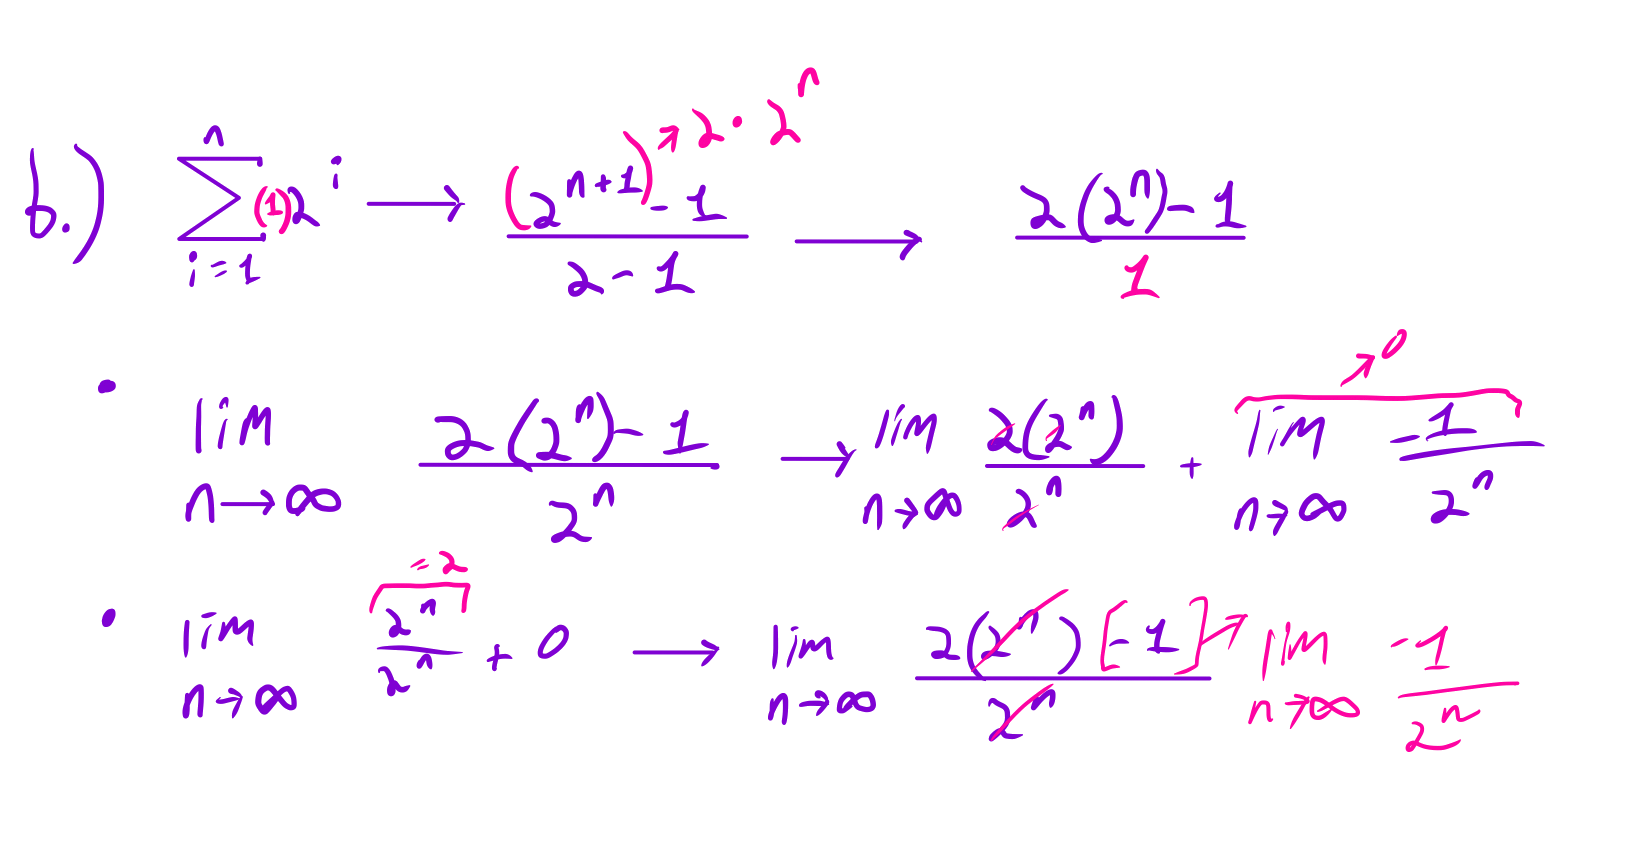 b.) $\sum_{i=1}^{n} (1) 2^i \longrightarrow \frac{(2^{n+1}) - 1}{2 - 1} \nearrow 2 \cdot 2^n \longrightarrow \frac{2(2^n) - 1}{1}$
• $\lim_{n \to \infty} \frac{2(2^n) - 1}{2^n} \longrightarrow \lim_{n \to \infty} \frac{2(2^n)}{2^n} + \lim_{n \to \infty} \frac{-1}{2^n} \nearrow 0$
• $\lim_{n \to \infty} \overbrace{\frac{2^n}{2^n}}^{= 2} + 0 \longrightarrow \lim_{n \to \infty} \frac{2(2^n) [-1]}{2^n} \nearrow \lim_{n \to \infty} \frac{-1}{2^n}$